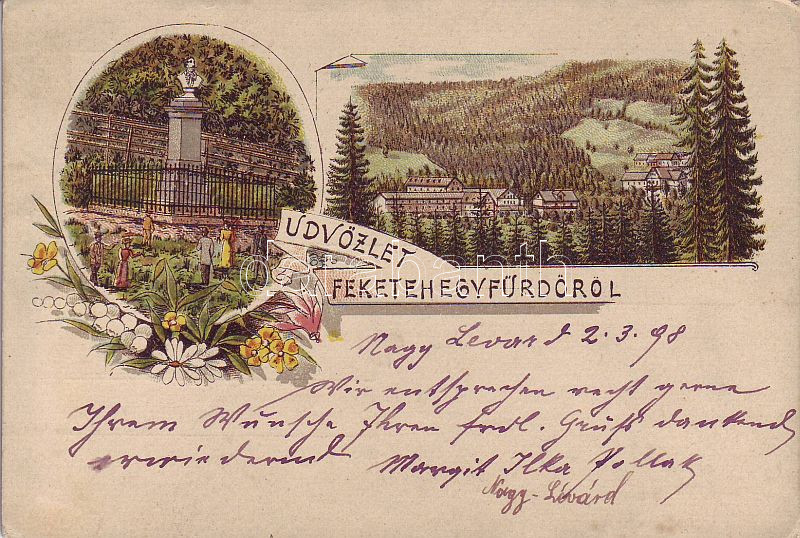 ÜDVÖZLET
FEKETEHEGYFÜRDÖRÖL
Nagy Levard 2.3.98
Wir entsprechen recht gerne
Ihrem Wunsche Ihren frdl. Gruß dankend
erwiedernd Margit Ilka Pollak
Nagy-Lévárd